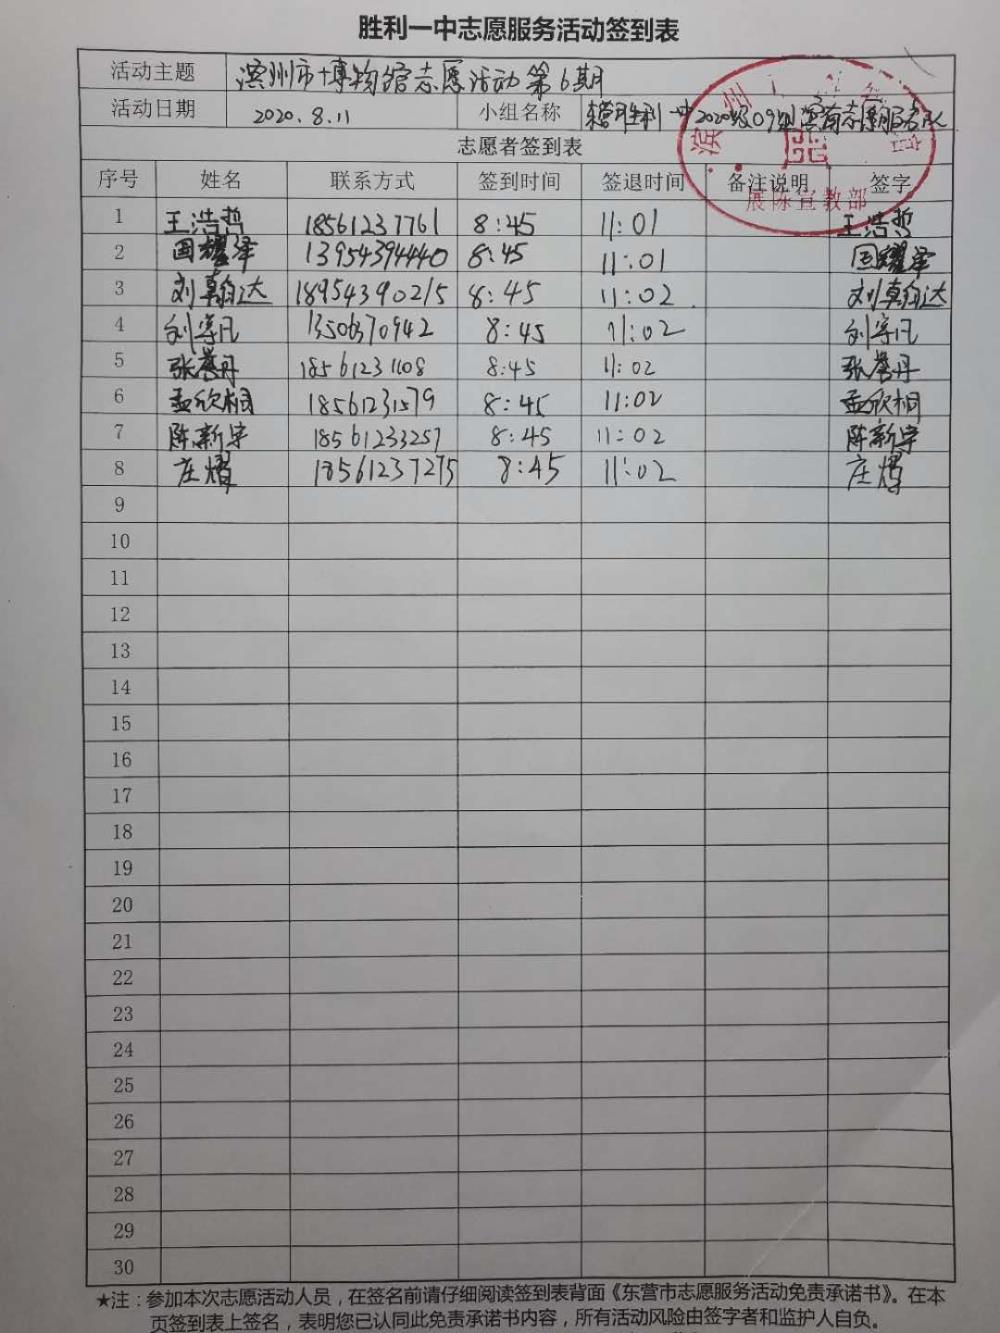 胜利一中志愿服务活动签到表
活动主题 滨州市博物馆志愿活动第6期
活动日期 2020.8.11 小组名称 东营胜利一中2020级09班 志愿服务队
志愿者签到表
序号 姓名 联系方式 签到时间 签退时间 备注说明 签字
展陈宣教部
1 王浩哲 18561237761 8:45 11:01 王浩哲
2 国耀泽 13954394440 8:45 11:01 国耀泽
3 刘翰达 18954390215 8:45 11:02 刘翰达
4 刘宇凡 13506370942 8:45 11:02 刘宇凡
5 张誉丹 18561231108 8:45 11:02 张誉丹
6 孟欣桐 18561231579 8:45 11:02 孟欣桐
7 陈新宇 18561233257 8:45 11:02 陈新宇
8 庄熠 18561237275 8:45 11:02 庄熠
9
10
11
12
13
14
15
16
17
18
19
20
21
22
23
24
25
26
27
28
29
30
★注：参加本次志愿活动人员，在签名前请仔细阅读签到表背面《东营市志愿服务活动免责承诺书》。在本
页签到表上签名，表明您已认同此免责承诺书内容，所有活动风险由签字者和监护人自负。